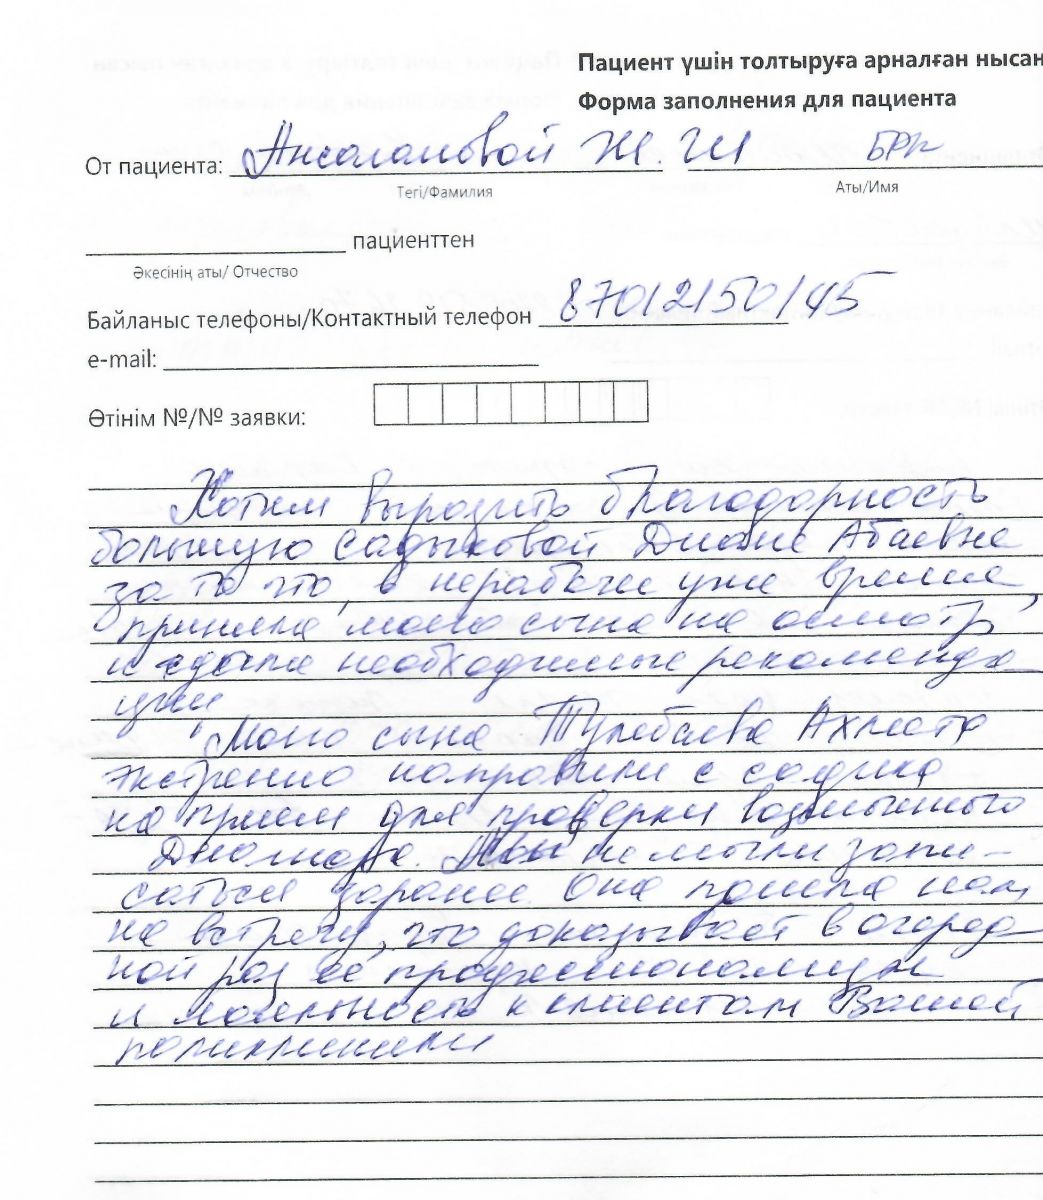 Пациент үшін толтыруға арналған нысан
Форма заполнения для пациента
От пациента: Ансалановой Ж. Ш
Тегі/Фамилия Аты/Имя
пациенттен
Әкесінің аты/ Отчество
Байланыс телефоны/Контактный телефон 87012150145
e-mail:
Өтінім №/№ заявки:
Хотим выразить благодарность
большую Садыковой Диане Абаевне
за то что, в нерабочи уже время,
приняла моего сына на осмотр
и сдала необходимые рекоменда
ции
Моего сына Тулебаева Ахмета
экстренно направили с садика
на прием для проверки возможного
диагноза. Мы не могли запи-
саться заранее. Она пошла нам,
на встречу, что доказывает в очеред
ной раз её профессионализм
и лояльность к клиентам Вашей
поликлиники